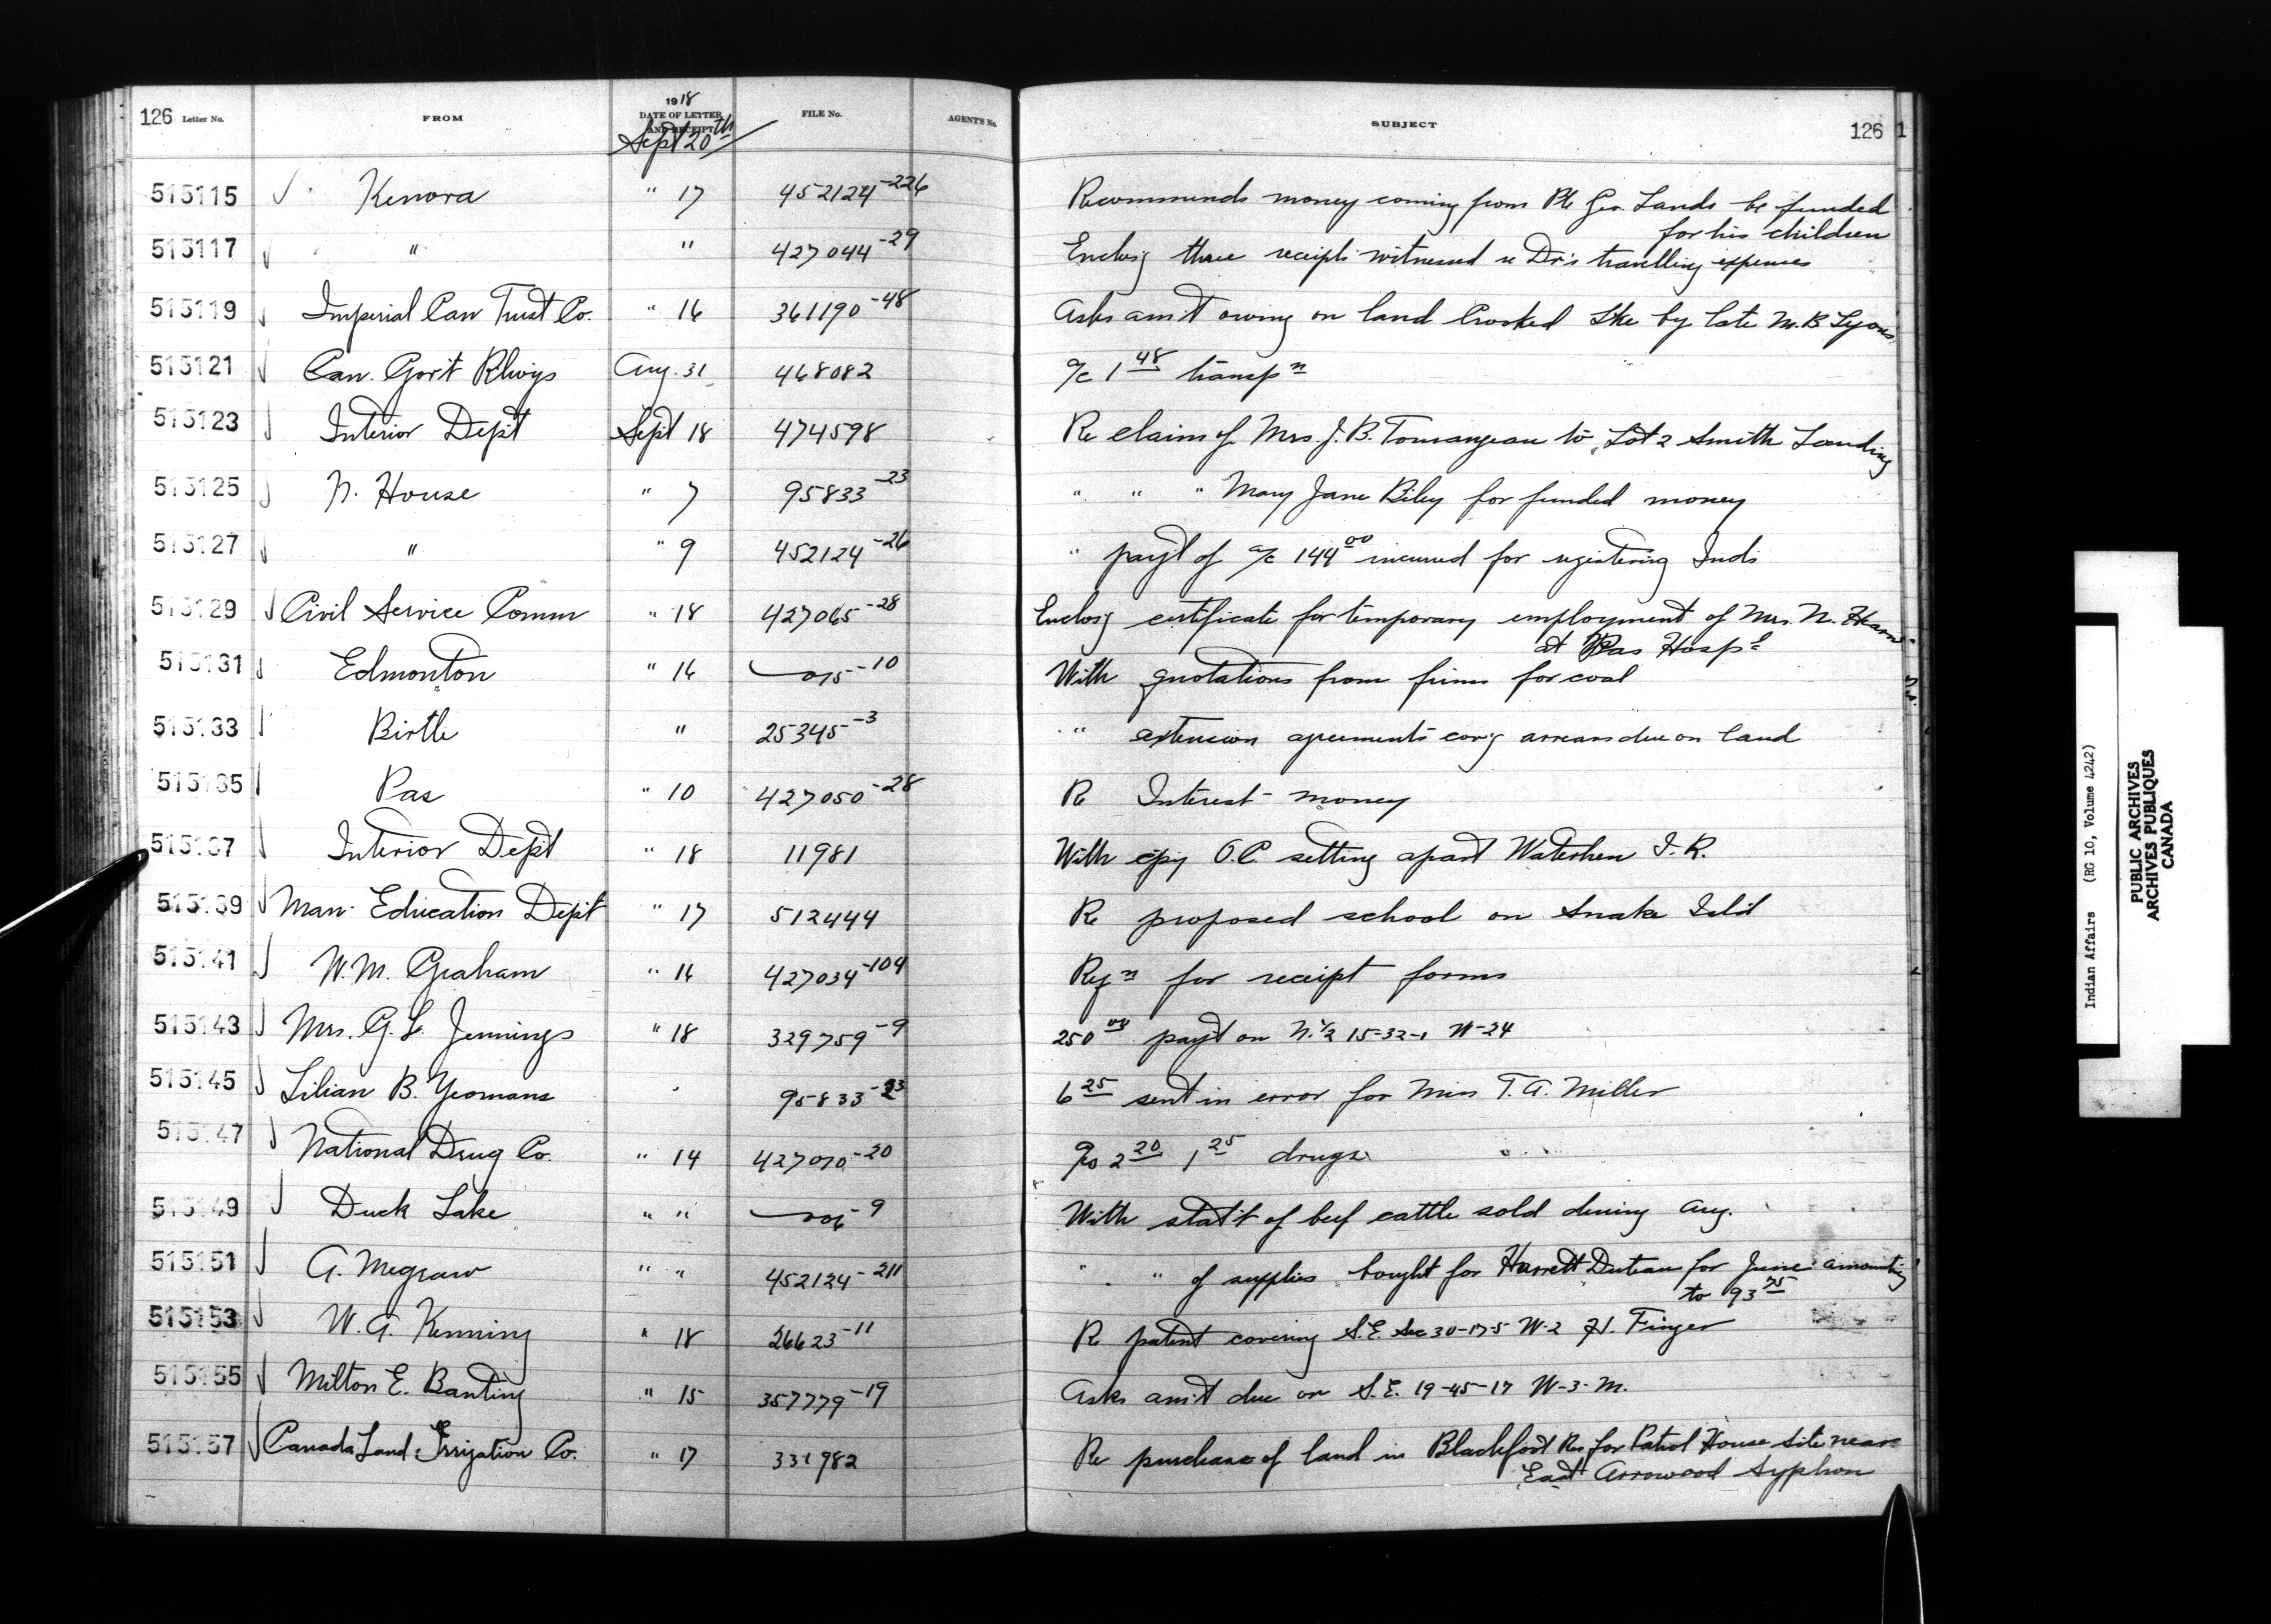 126 Letter No. FROM 1918 DATE OF LETTER AND RECEIPT Sept 20th FILE No. AGENT'S No. SUBJECT 126 1
515115 Kenora " 17 452124-226 Recommends money coming from Pte Geo. Lands be funded
for his children
515117 " " 427044-29 Enclos'g three receipts witnessed re Dr's travelling expenses
515119 Imperial Can Trust Co. " 16 361190-48 Asks am't owing on land Crooked Lke by late M.B Lyons
515121 Can. Gov't Rlwys Aug. 31 468082 a/c 1 48 transpn
515123 Interior Dep't Sept 18 474598 Re claim of Mrs. J. B. Tourangeau to Lot 2 Smith Landing
515125 N. House " 7 95833-23 " " " Mary Jane Biley for funded money
515127 " " 9 452124-26 " pay't of a/c 144 00 incurred for registering Inds
515129 Civil Service Comm " 18 427065-28 Enclos'g certificate for temporary employment of Mrs. N.
at Pas Hospl
515131 Edmonton " 16 015-10 With quotations from firms for coal
515133 Birtle " 25345-3 " extension agreements cov'g arrears due on land
515135 Pas " 10 427050-28 Re Interest money
515137 Interior Dep't " 18 11981 With cpy O.C. setting apart Waterhen I. R.
515139 Man. Education Dep't " 17 512444 Re proposed school on Snake Isl'd
515141 W. M. Graham " 16 427034-104 Reqn for receipt forms
515143 Mrs. G. L. Jennings " 18 329759-9 250 00 pay't on N. 1/2 15-32-1 W-24
515145 Lilian B. Yeomans " 95833-23 6 25 sent in error for Miss T. A. Miller
515147 National Drug Co. " 14 427010-20 a/cs 2 20 1 25 drugs
515149 Duck Lake " " 006-9 With stat't of beef cattle sold during Aug.
515151 A. Megraw " " 452124-211 " " of supplies bought for Harrett Duteau for June amounting
to 93 75
515153 W. A. Kenning " 18 26623-11 Re patent covering S.E. Sec 30-17-5 W-2 H. Finger
515155 Milton E. Banting " 15 357779-19 Asks am't due on S.E. 19-45-17 W-3-M.
515157 Canada Land & Irrigation Co. " 17 331982 Re purchase of land in Blackfoot Res for Patrol House site near
East Arrowood Syphon
Indian Affairs (RG 10, Volume 4242)
PUBLIC ARCHIVES
ARCHIVES PUBLIQUES
CANADA